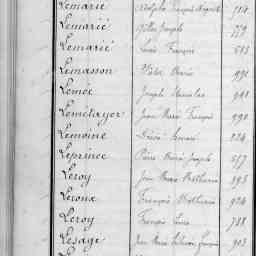 Lemarié Adolphe François Auguste 714
Lemarié Gilles Joseph 779
Lemarié Louis François 583
Lemasson Victor Marie 991
Lemée Joseph Stanislas 901
Lemétayer Jean Marie François 990
Lemoine 224
Leprince Pierre Marie Joseph 557
Leroy Jean Marie Mathurin 295
Leroux François Mathurin 924
Leroy François Louis 788
Lesage Jean Marie François 903